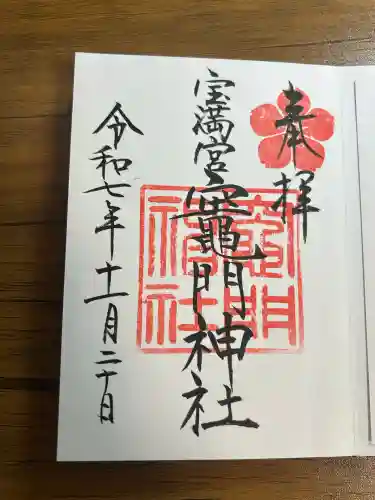 奉拝
宝満宮竈門神社
竈門神社
令和七年十一月二十日